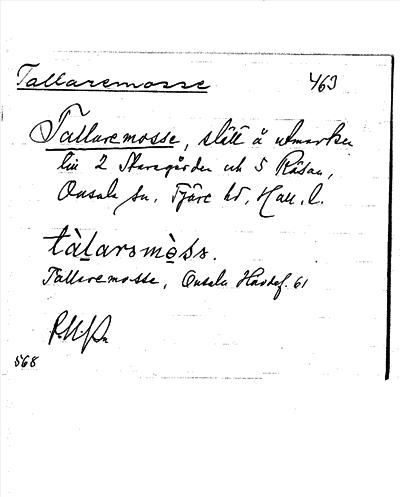 Tallaremosse 463
Tallaremosse, slätt å utmarken
till 2 Staragården och 5 Råsan,
Onsala sn, Fjäre hd, Hall. l.
tàlarsmòss.
Tallaremosse, Onsala Havdef. 61
568